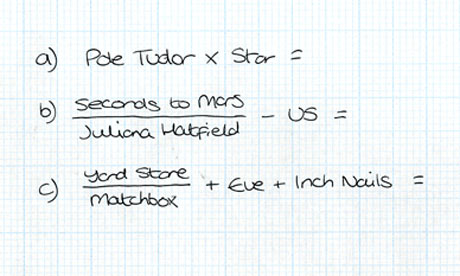 a) Pole Tudor x Star =
b) Seconds to Mars
Juliana Hatfield - US =
c) Yard Stare
Matchbox + Eve + Inch Nails =